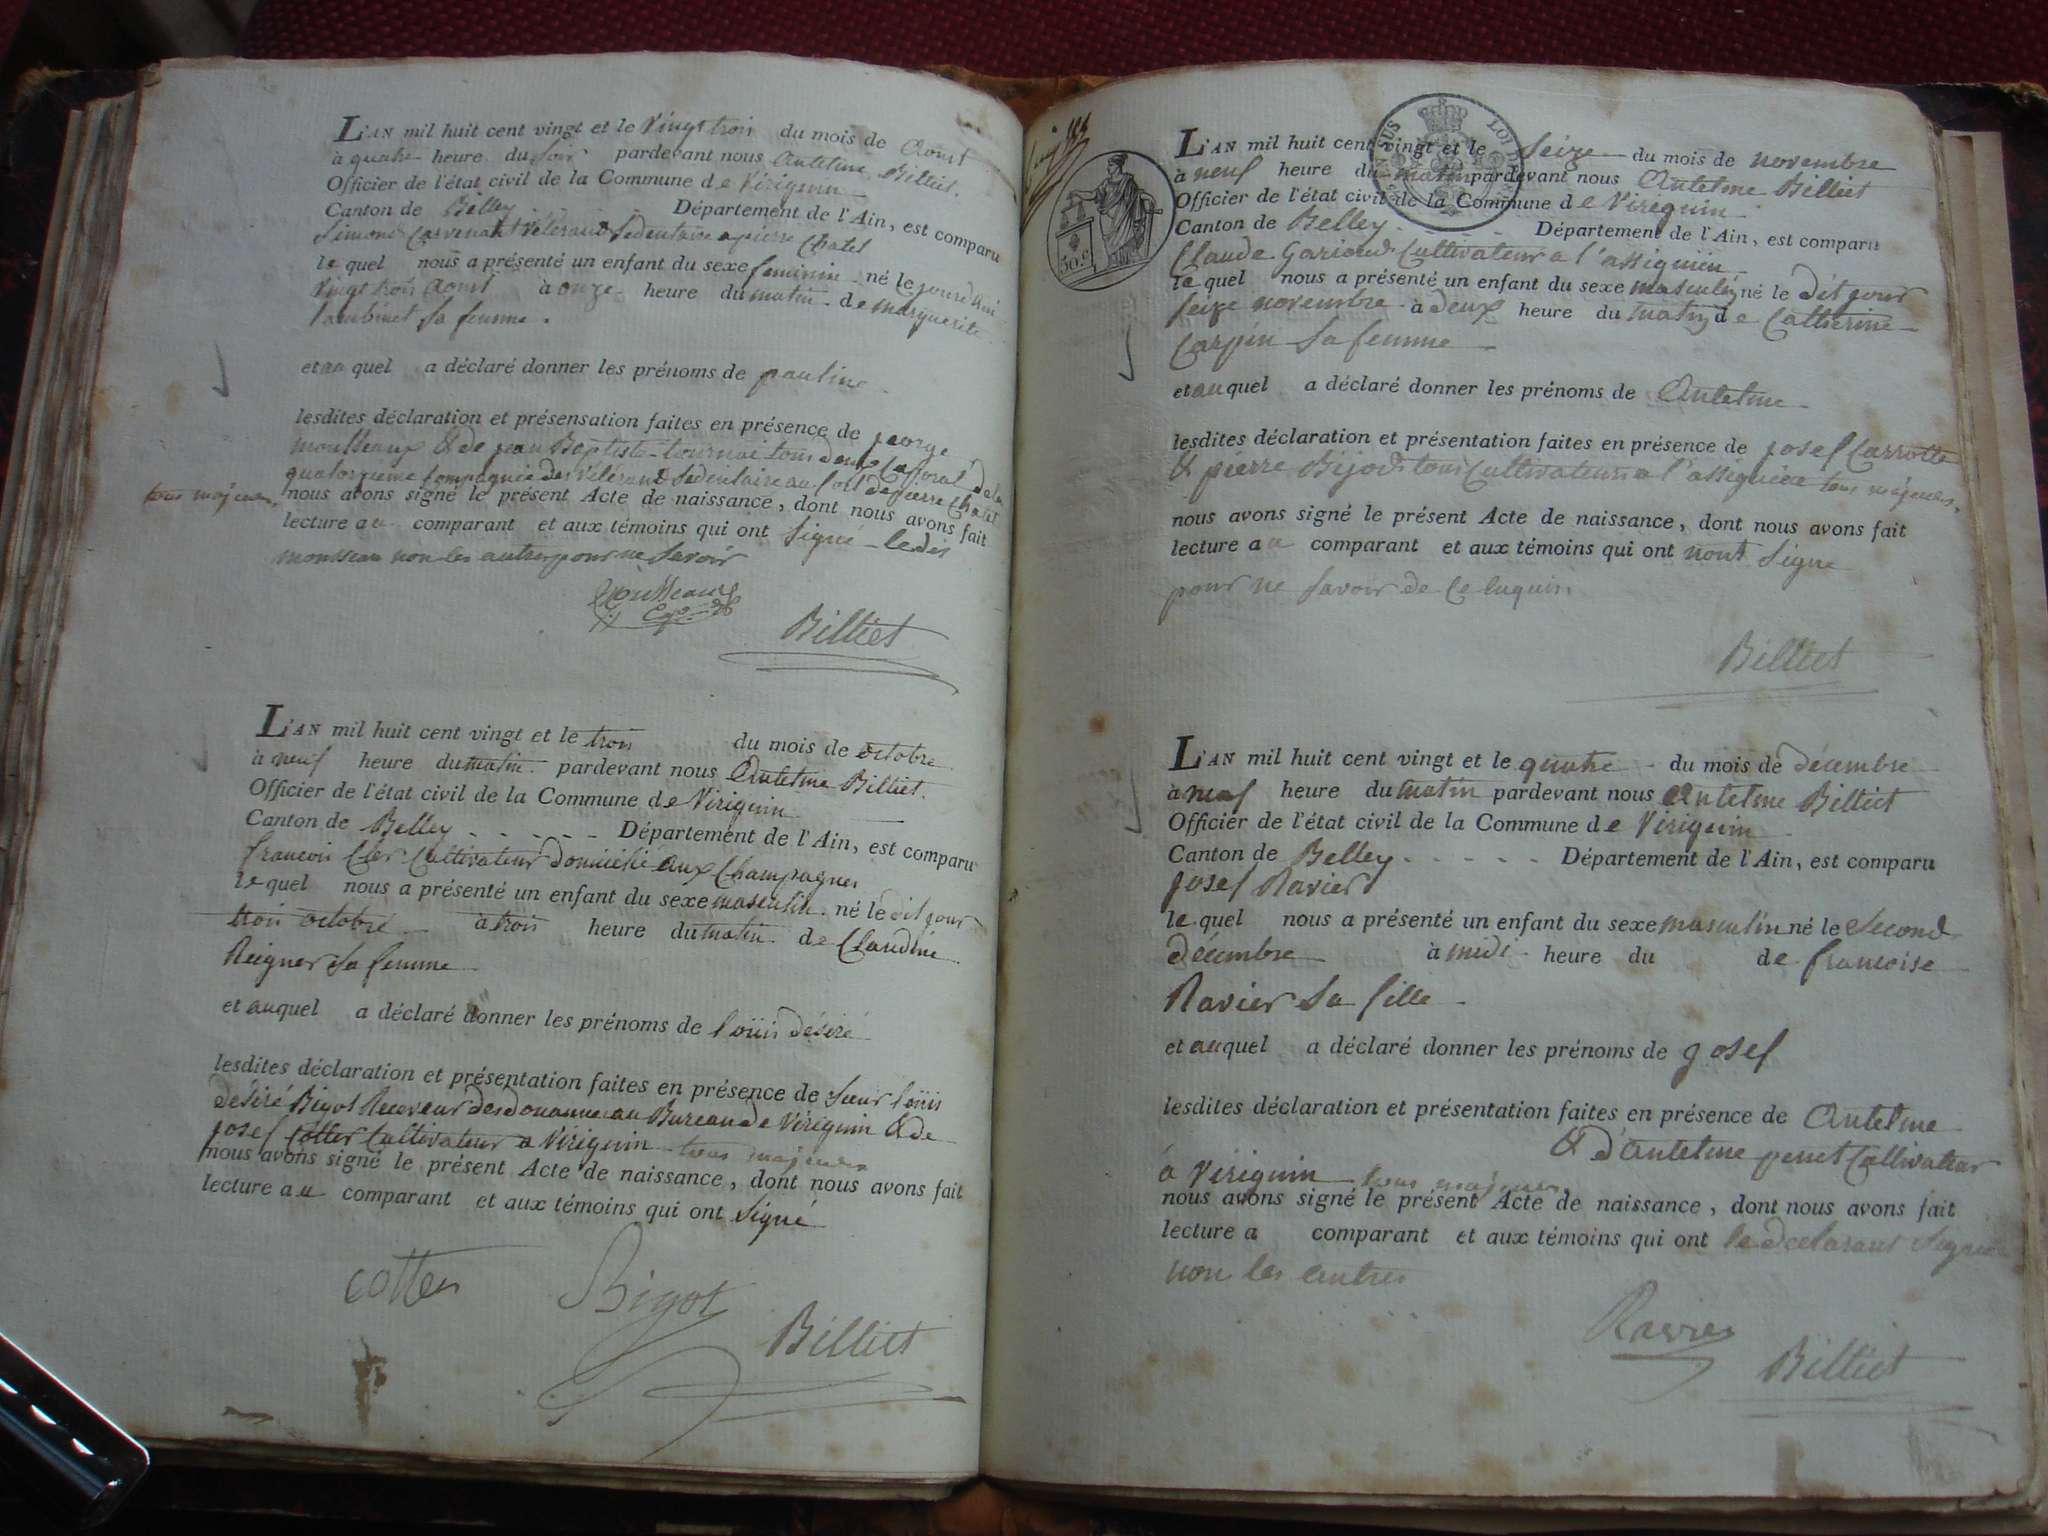 L'AN mil huit cent vingt et le Vingt trois du mois de Aoust
à quatre heure du soir pardevant nous Antelme Billiet.
Officier de l'état civil de la Commune de Virignin
Canton de Belley Département de l'Ain, est comparu
Simond vétérant Sédentaire a pierre Chatel
le quel nous a présenté un enfant du sexe feminin né le jourd'hui
vingt trois Aoust à onze heure du matin de marguerite
sa femme.
et au quel a déclaré donner les prénoms de pauline
lesdites déclaration et présensation faites en présence de george
moutteaux & de jean Baptiste tournié tous deux Caporal de la
quatorzième Compagnie des Vétérans Sédentaire au fort de pierre Chatel
tous majeurs
nous avons signé le présent Acte de naissance, dont nous avons fait
lecture au comparant et aux témoins qui ont Signé le dis
mousseau non les autres pour ne Savoir
Billiet
L'AN mil huit cent vingt et le trois du mois de octobre
à neuf heure du matin pardevant nous Antelme Billiet.
Officier de l'état civil de la Commune de Virignin
Canton de Belley - - - - - Département de l'Ain, est comparu
francois Cler Cultivateur domicilié aux Champagnes
le quel nous a présenté un enfant du sexe masculin né le dit jour
trois octobre à trois heure du matin de Claudine
Reigner Sa femme
et auquel a déclaré donner les prénoms de loüis désiré
lesdites déclaration et présentation faites en présence de Sieur loüis
désiré Bigot Receveur des douannes au Bureau de Virignin & de
josef Cotter Cultivateur a Virignin tous majeurs
nous avons signé le présent Acte de naissance, dont nous avons fait
lecture au comparant et aux témoins qui ont signé
Cotter Bigot
Billiet
50.c
SUS LOI DE
L'AN mil huit cent vingt et le Seize du mois de novembre
à neuf heure du matin pardevant nous Antelme Billiet
Officier de l'état civil de la Commune de Virignin
Canton de Belley Département de l'Ain, est comparu
Claude Gariond Cultivateur a l'assignien
le quel nous a présenté un enfant du sexe masculin né le dit jour
seize novembre à deux heure du matin de Catherine
Carpin Sa femme
et auquel a déclaré donner les prénoms de Antelme
lesdites déclaration et présentation faites en présence de josef Carrotte
& pierre Bijod tous Cultivateurs a l'assignien tous majeurs.
nous avons signé le présent Acte de naissance, dont nous avons fait
lecture au comparant et aux témoins qui ont nont Signe
pour ne Savoir de Ce enquin
Billiet
L'AN mil huit cent vingt et le quatre du mois de décembre
à neuf heure du matin pardevant nous Antelme Billiet
Officier de l'état civil de la Commune de Virignin
Canton de Belley - - - - - Département de l'Ain, est comparu
josef Ravier
le quel nous a présenté un enfant du sexe masculin né le Second
décembre à midi heure du de francoise
Ravier Sa fille
et auquel a déclaré donner les prénoms de josef
lesdites déclaration et présentation faites en présence de Antelme
& d'Antelme penet Cultivateur
à Virignin tous majeurs
nous avons signé le présent Acte de naissance, dont nous avons fait
lecture a comparant et aux témoins qui ont le déclarant Signé
non les autres
Ravier
Billiet